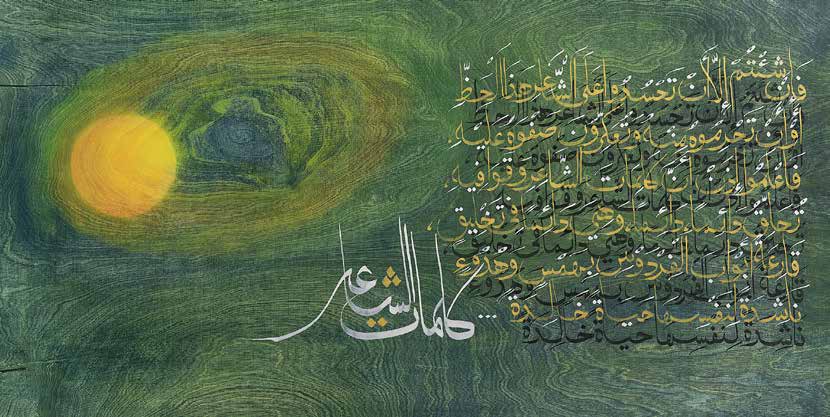 فَإِن شِئْتُمُ الآنَ تَحْسُدُوا عَلَى الشَّاعِرِ هَذَا الْحَظَّ
أَوْ أَنْ تَحْرِمُوهُ مِنْهُ وَتُنْكِرُونَ صَفْوَهُ عَلَيْهِ،
فَاعْلَمُوا إِذَنْ أَنَّ كَلِمَاتِ الشَّاعِرِ وَقَوَافِيهِ،
تُحَلِّقُ دَائِمًا، دَائِمًا، وَهْيَ دَائِمًا فِي تَحْلِيقٍ،
قَارِعَةً أَبْوَابَ الْفِرْدَوْسِ بِهَمْسٍ وَهُدُوءٍ
نَاشِدَةً لِنَفْسِهَا حَيَاةً خَالِدَةً ...
كلمات الشاعر